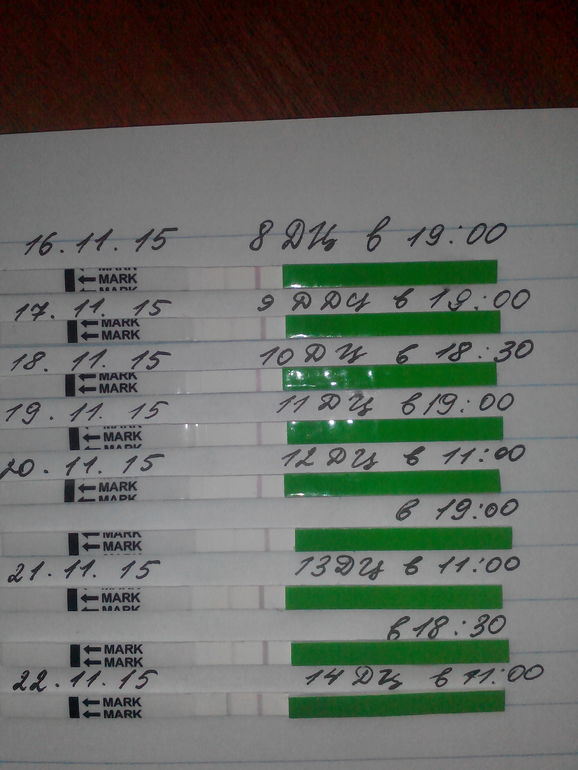 16.11.15 8 ДЦ в 19:00
MARK
MARK
MARK
17.11.15 9 ДДЦ в 19:00
MARK
MARK
18.11.15 10 ДЦ в 18:30
MARK
MARK
19.11.15 11 ДЦ в 19:00
MARK
MARK
20.11.15 12 ДЦ в 11:00
MARK
MARK
в 19:00
MARK
MARK
21.11.15 13 ДЦ в 11:00
MARK
MARK
MARK
в 18:30
MARK
MARK
22.11.15 14 ДЦ в 11:00
MARK
MARK